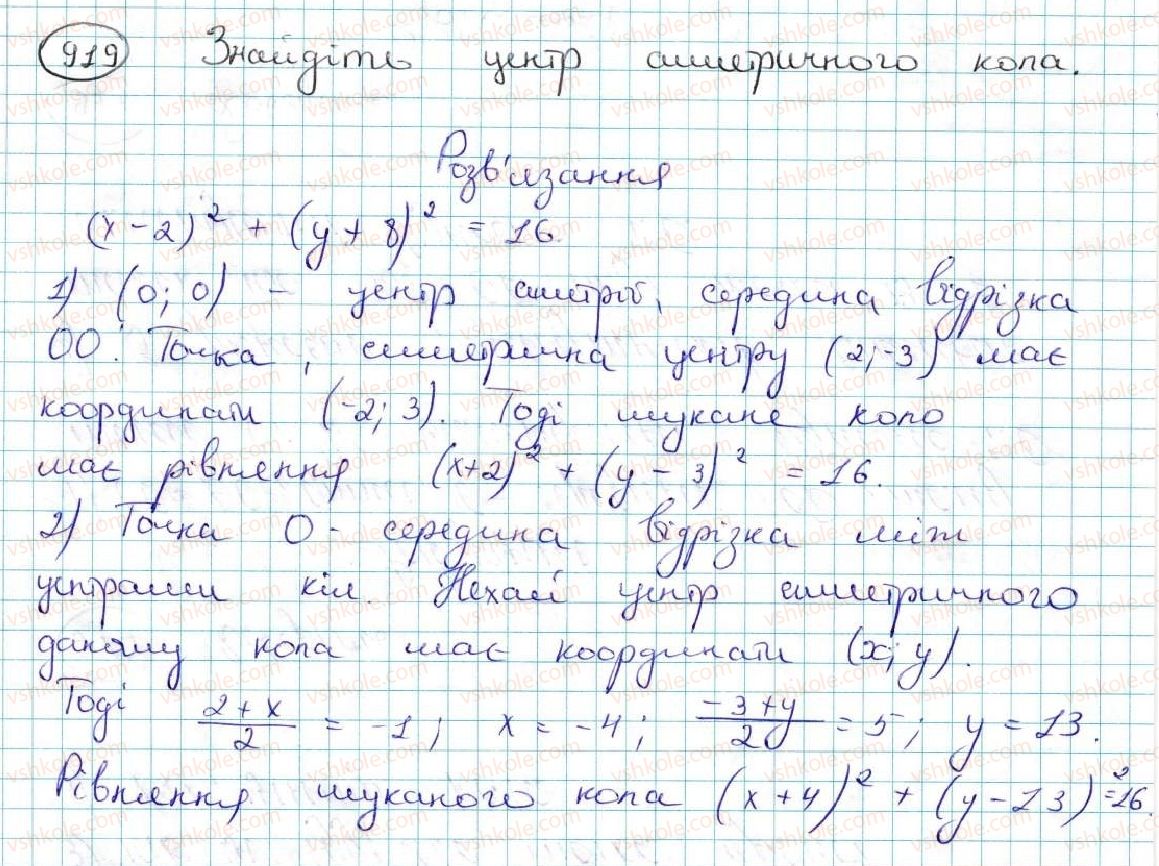 919 Знайдіть центр симетричного кола.
Розв'язання
(x-2)² + (y+8)² = 16.
1) (0; 0) - центр симетрії, середина відрізка
OO'. Точка, симетрична центру (2;-3) має
координати (-2; 3). Тоді шукане коло
має рівняння (x+2)² + (y-3)² = 16.
2) Точка O - середина відрізка між
центрами кіл. Нехай центр симетричного
даному кола має координати (x; y).
Тоді (2+x)/2 = -1; x = -4; (-3+y)/2 = 5; y = 13.
Рівняння шуканого кола (x+4)² + (y-13)² = 16.